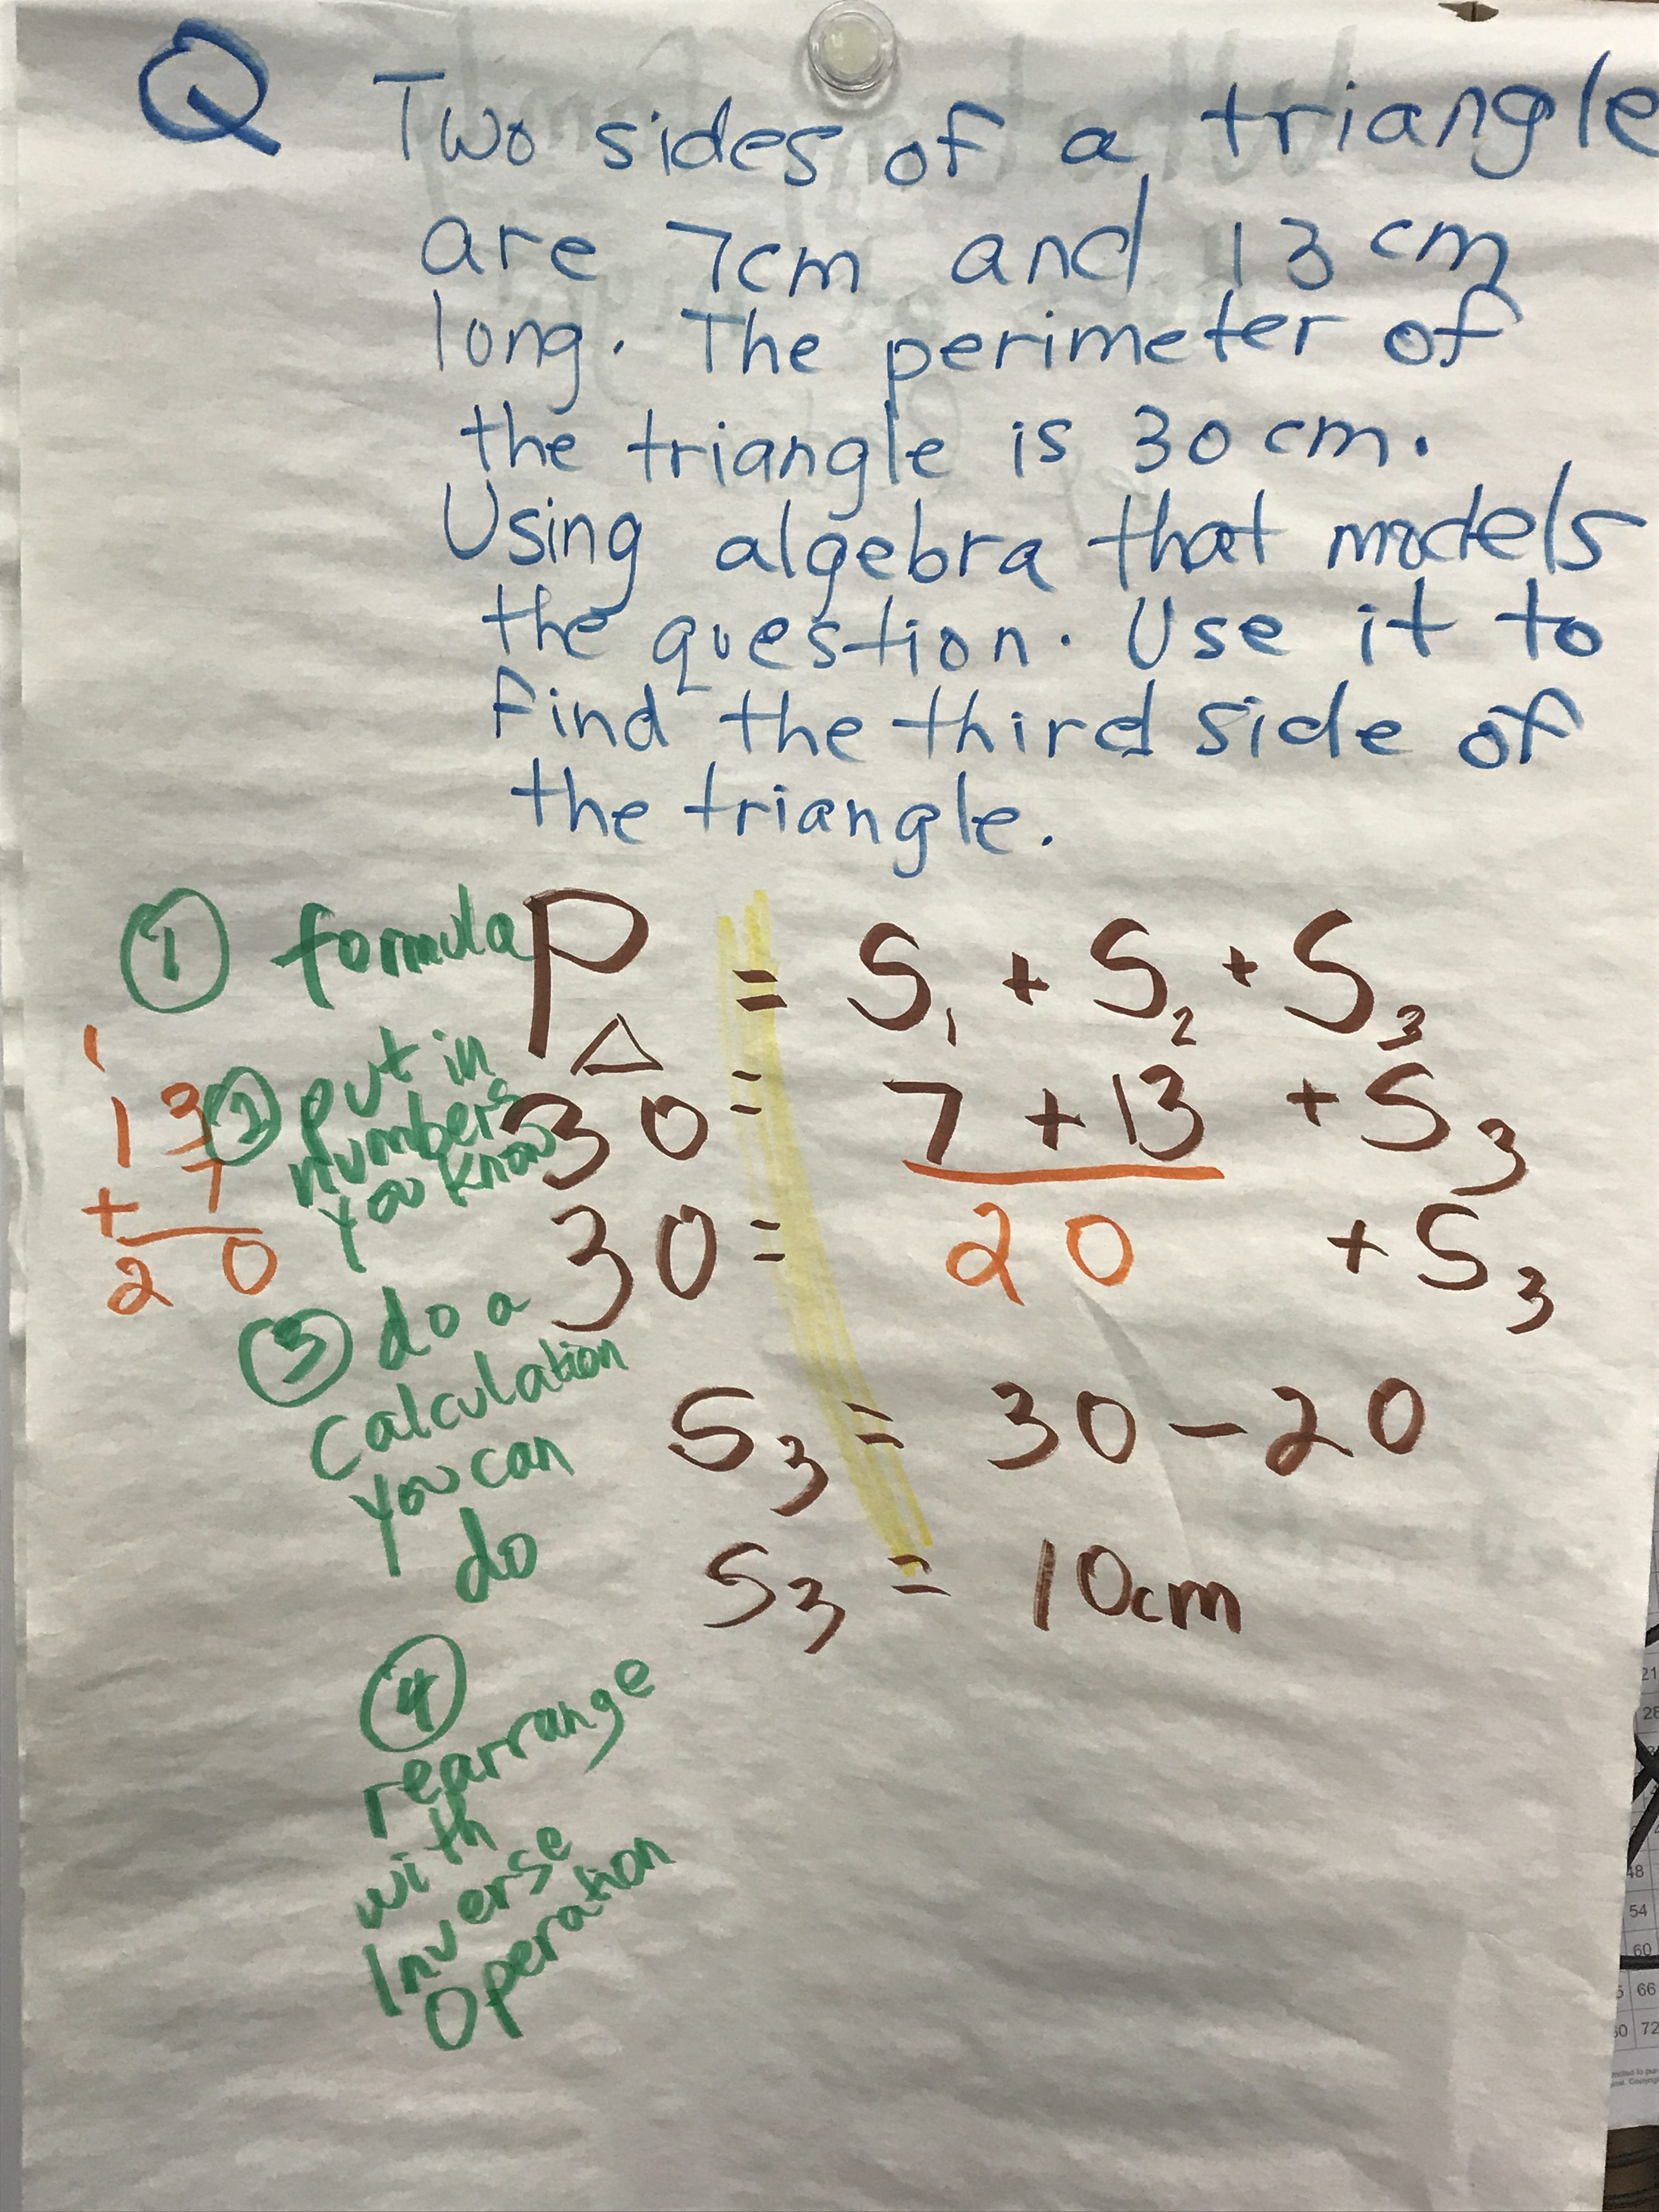 Q Two sides of a triangle
are 7cm and 13 cm
long. The perimeter of
the triangle is 30 cm.
Using algebra that models
the question. Use it to
find the third side of
the triangle.
① formula P△ = S₁ + S₂ + S₃
② put in
numbers
you know
30 = 7 + 13 + S₃
1
13
+ 7
20
30 = 20 + S₃
③ do a
calculation
you can
do
S₃ = 30 - 20
S₃ = 10cm
④
rearrange
with
Inverse
Operation
21
28
48
54
60
66
72